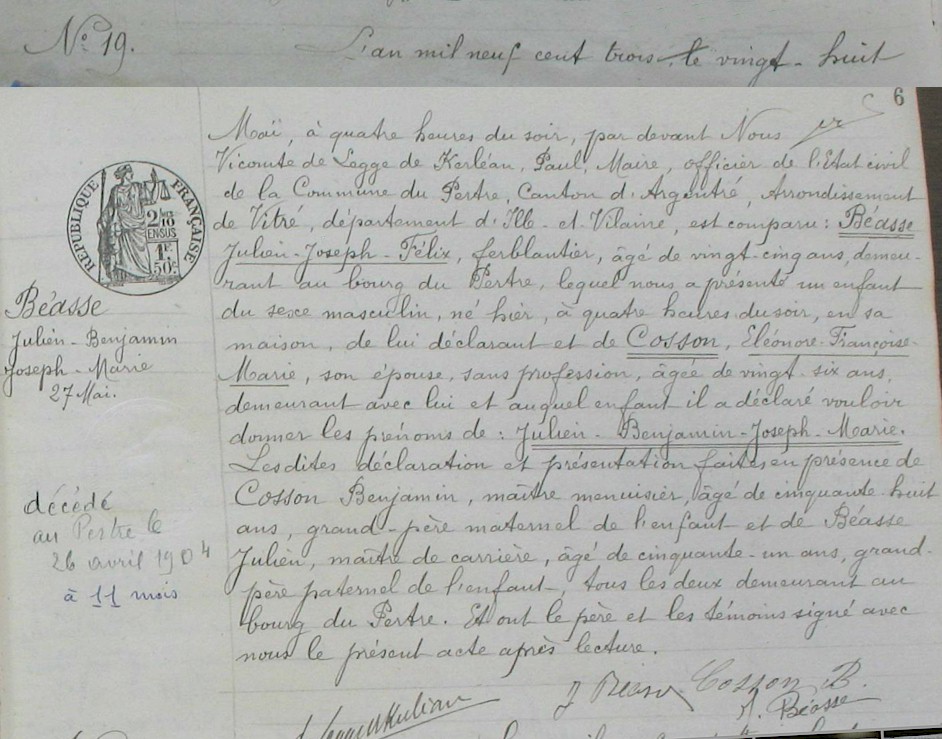 N° 19. L'an mil neuf cent trois, le vingt-huit
6
Maï, à quatre heures du soir, par devant Nous
Vicomte de Legge de Kerléan, Paul, Maire, officier de l'Etat civil
de la Commune du Pertre, Canton d'Argentré, Arrondissement
de Vitré, département d'Ille-et-Vilaine, est comparu : Béasse
Julien-Joseph-Félix, ferblantier, âgé de vingt-cinq ans, demeu-
rant au bourg du Pertre, lequel nous a présenté un enfant
du sexe masculin, né hier, à quatre heures du soir, en sa
maison, de lui déclarant et de Cosson, Eléonore-Françoise-
Marie, son épouse, sans profession, âgée de vingt-six ans,
demeurant avec lui et auquel enfant il a déclaré vouloir
donner les prénoms de : Julien-Benjamin-Joseph-Marie.
Lesdites déclaration et présentation faites en présence de
Cosson Benjamin, maître menuisier, âgé de cinquante-huit
ans, grand-père maternel de l'enfant et de Béasse
Julien, maître de carrière, âgé de cinquante-un ans, grand-
père paternel de l'enfant, tous les deux demeurant au
bourg du Pertre. Et ont le père et les témoins signé avec
nous le présent acte après lecture.
J Béasse Cosson B.
J. Béasse
RÉPUBLIQUE FRANÇAISE
2/10 EN SUS
1F 50c
Béasse
Julien-Benjamin
Joseph-Marie
27 Mai.
décédé
au Pertre le
26 avril 1904
à 11 mois